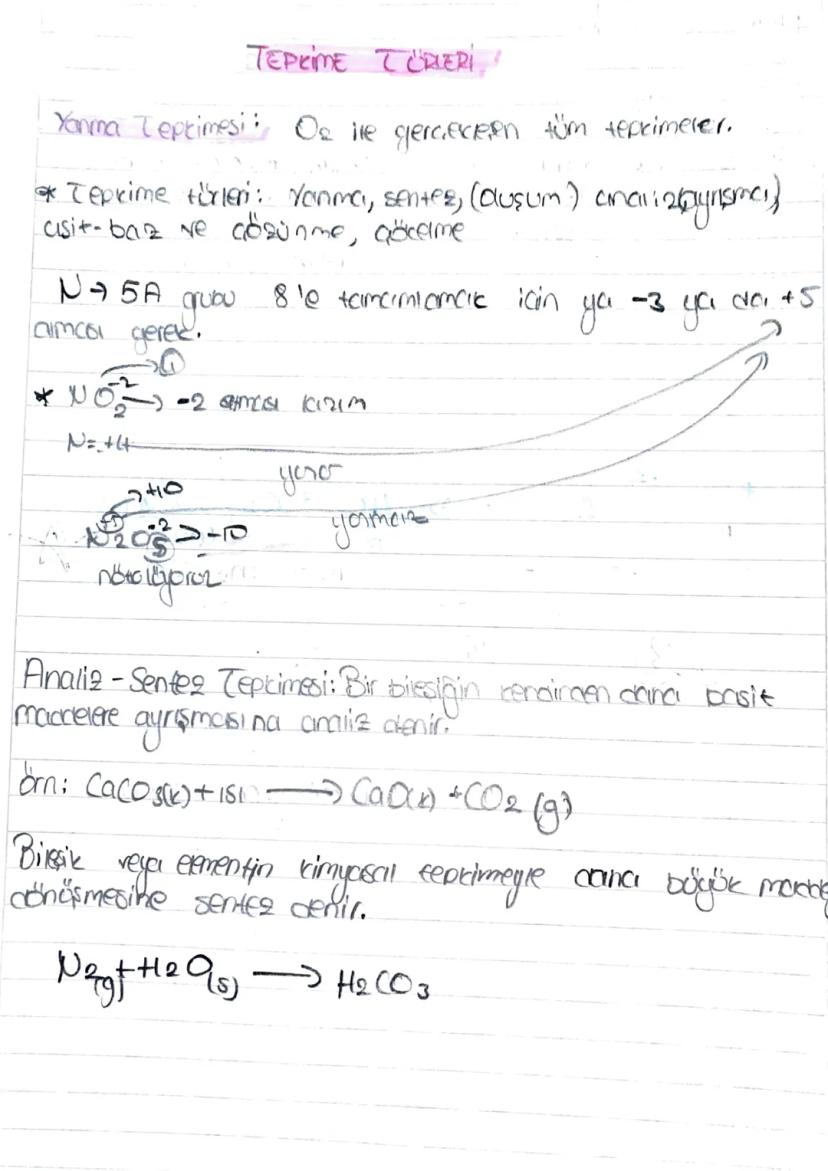 TEPKİME TÜRLERİ
Yanma Tepkimesi: O2 ile gerçekleşen tüm tepkimeler.
* Tepkime türleri: Yanma, sentez, (oluşum) analiz(ayrışma)
asit-baz ve çözünme, çökelme
N → 5A grubu 8'e tamamlamak için ya -3 ya da +5
alması gerek.
* NO2 -2 → -2 alması lazım
N=+4
yanar
+10
N2O5 -2 > -10
yanmaz
nötrlüyoruz
Analiz - Sentez Tepkimesi: Bir bileşiğin kendinden daha basit
maddelere ayrışmasına analiz denir.
Örn: CaCO3(k) + ısı → CaO(k) + CO2 (g)
Bileşik veya elementin kimyasal tepkimeyle daha büyük madde
dönüşmesine sentez denir.
N2(g) + H2O(s) → H2CO3